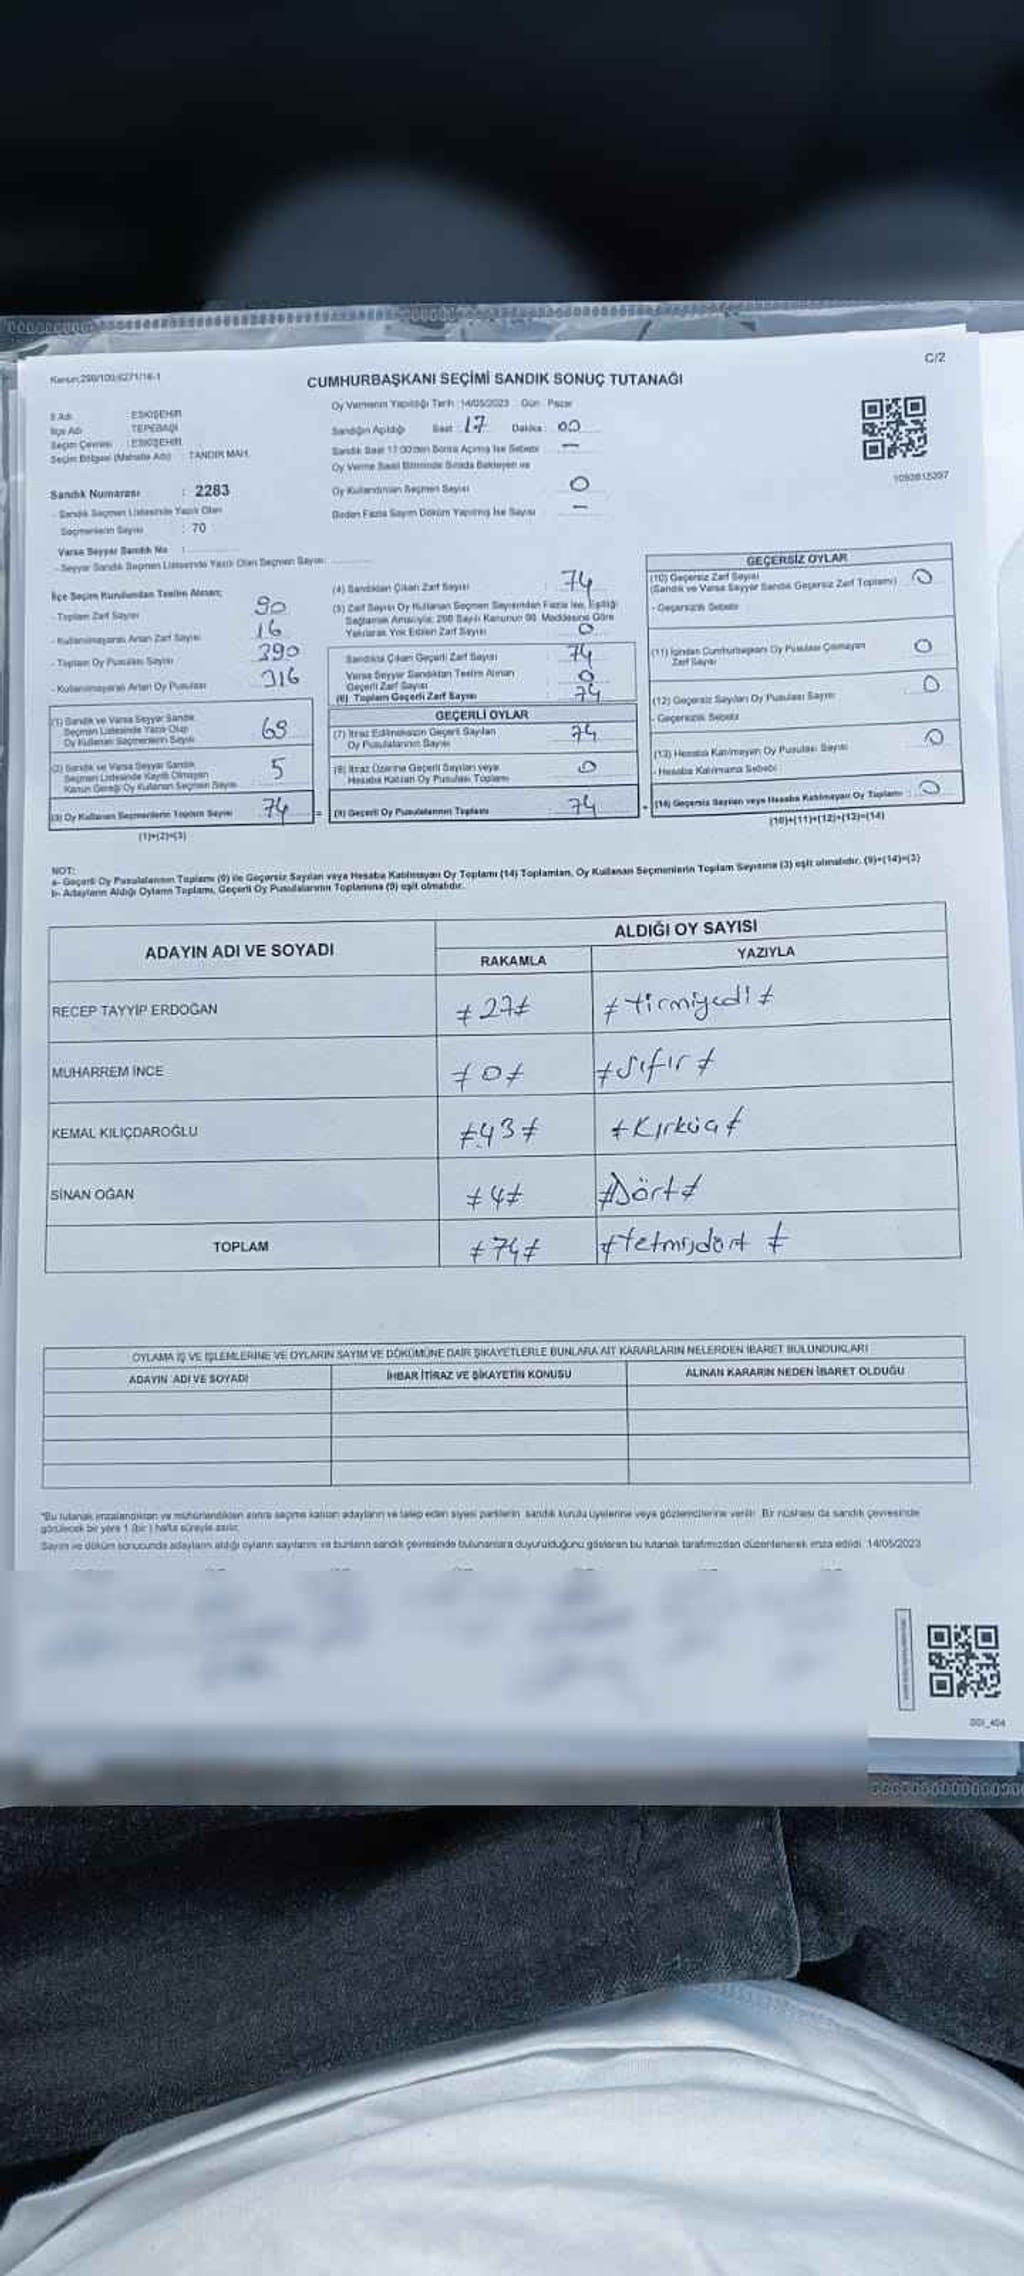 C/2
Kanun:298/100,6271/16-1
CUMHURBAŞKANI SEÇİMİ SANDIK SONUÇ TUTANAĞI
İl Adı : ESKİŞEHİR
İlçe Adı : TEPEBAŞI
Seçim Çevresi : ESKİŞEHİR
Seçim Bölgesi (Mahalle Adı) : TANDIR MAH.
Sandık Numarası : 2283
- Sandık Seçmen Listesinde Yazılı Olan
Seçmenlerin Sayısı : 70
Varsa Seyyar Sandık No :
- Seyyar Sandık Seçmen Listesinde Yazılı Olan Seçmen Sayısı:
Oy Vermenin Yapıldığı Tarih :14/05/2023 Gün : Pazar
Sandığın Açıldığı Saat : 17 Dakika : 00
Sandık Saat 17:00'den Sonra Açılmış İse Sebebi : —
Oy Verme Saati Bitiminde Sırada Bekleyen ve
Oy Kullandırılan Seçmen Sayısı : 0
Birden Fazla Sayım Döküm Yapılmış İse Sayısı : —
1093815397
İlçe Seçim Kurulundan Teslim Alınan;
- Toplam Zarf Sayısı : 90
- Kullanılmayarak Artan Zarf Sayısı : 16
- Toplam Oy Pusulası Sayısı : 390
- Kullanılmayarak Artan Oy Pusulası : 316
(1) Sandık ve Varsa Seyyar Sandık
Seçmen Listesinde Yazılı Olup
Oy Kullanan Seçmenlerin Sayısı : 69
(2) Sandık ve Varsa Seyyar Sandık
Seçmen Listesinde Kayıtlı Olmayan
Kanun Gereği Oy Kullanan Seçmen Sayısı : 5
(3) Oy Kullanan Seçmenlerin Toplam Sayısı : 74
(1)+(2)=(3)
(4) Sandıktan Çıkan Zarf Sayısı : 74
(5) Zarf Sayısı Oy Kullanan Seçmen Sayısından Fazla İse, Eşitliği
Sağlamak Amacıyla; 298 Sayılı Kanunun 98. Maddesine Göre
Yakılarak Yok Edilen Zarf Sayısı : 0
Sandıkta Çıkan Geçerli Zarf Sayısı : 74
Varsa Seyyar Sandıktan Teslim Alınan
Geçerli Zarf Sayısı : 0
(6) Toplam Geçerli Zarf Sayısı : 74
GEÇERLİ OYLAR
(7) İtiraz Edilmeksizin Geçerli Sayılan
Oy Pusulalarının Sayısı : 74
(8) İtiraz Üzerine Geçerli Sayılan veya
Hesaba Katılan Oy Pusulası Toplamı : 0
(9) Geçerli Oy Pusulalarının Toplamı : 74
GEÇERSİZ OYLAR
(10) Geçersiz Zarf Sayısı
(Sandık ve Varsa Seyyar Sandık Geçersiz Zarf Toplamı) : 0
- Geçersizlik Sebebi :
(11) İçinden Cumhurbaşkanı Oy Pusulası Çıkmayan
Zarf Sayısı : 0
(12) Geçersiz Sayılan Oy Pusulası Sayısı : 0
- Geçersizlik Sebebi :
(13) Hesaba Katılmayan Oy Pusulası Sayısı : 0
- Hesaba Katılmama Sebebi :
(14) Geçersiz Sayılan veya Hesaba Katılmayan Oy Toplamı : 0
(10)+(11)+(12)+(13)=(14)
NOT:
a- Geçerli Oy Pusulalarının Toplamı (9) ile Geçersiz Sayılan veya Hesaba Katılmayan Oy Toplamı (14) Toplamları, Oy Kullanan Seçmenlerin Toplam Sayısına (3) eşit olmalıdır. (9)+(14)=(3)
b- Adayların Aldığı Oyların Toplamı, Geçerli Oy Pusulalarının Toplamına (9) eşit olmalıdır.
ADAYIN ADI VE SOYADI
ALDIĞI OY SAYISI
RAKAMLA YAZIYLA
RECEP TAYYİP ERDOĞAN ≠27≠ ≠Yirmiyedi≠
MUHARREM İNCE ≠0≠ ≠Sıfır≠
KEMAL KILIÇDAROĞLU ≠43≠ ≠Kırküç≠
SİNAN OĞAN ≠4≠ ≠Dört≠
TOPLAM ≠74≠ ≠Yetmişdört≠
OYLAMA İŞ VE İŞLEMLERİNE VE OYLARIN SAYIM VE DÖKÜMÜNE DAİR ŞİKAYETLERLE BUNLARA AİT KARARLARIN NELERDEN İBARET BULUNDUKLARI
ADAYIN ADI VE SOYADI İHBAR İTİRAZ VE ŞİKAYETİN KONUSU ALINAN KARARIN NEDEN İBARET OLDUĞU
*Bu tutanak imzalandıktan ve mühürlendikten sonra seçime katılan adayların ve talep eden siyasi partilerin sandık kurulu üyelerine veya gözlemcilerine verilir. Bir nüshası da sandık çevresinde
görülecek bir yere 1 (bir) hafta süreyle asılır.
Sayım ve döküm sonucunda adayların aldığı oyların sayılarını ve bunların sandık çevresinde bulunanlara duyurulduğunu gösteren bu tutanak tarafımızdan düzenlenerek imza edildi. 14/05/2023
001_404